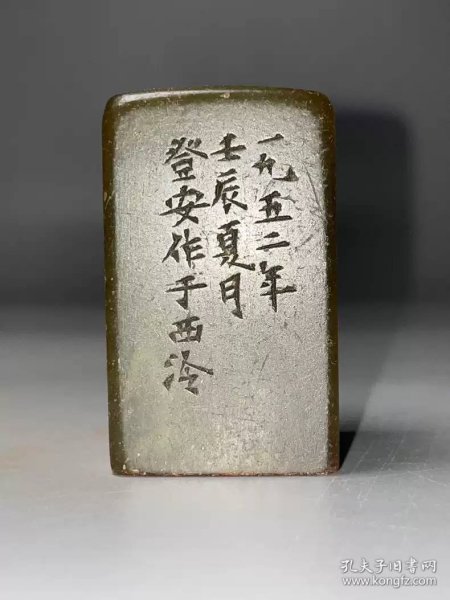 一九五二年
壬辰夏月
登安作于西泠
孔夫子旧书网
www.kongfz.com